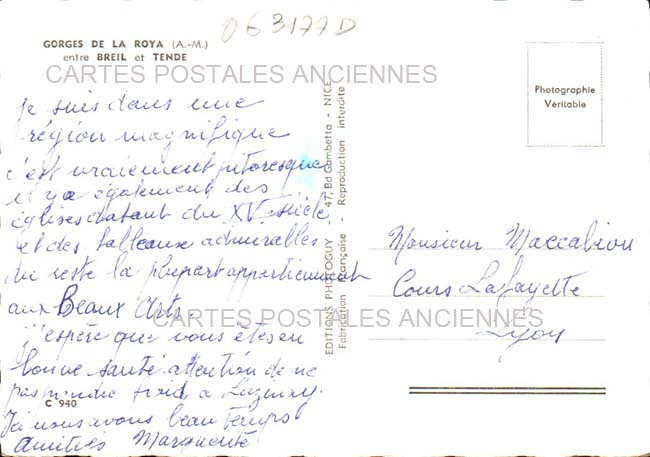 063177D
GORGES DE LA ROYA (A.-M.)
entre BREIL et TENDE
CARTES POSTALES ANCIENNES
Je suis dans une
région magnifique
c'est vraiement pitoresque
il y a également des
églises datant du XV. siècle
et des tableaux admirables
du reste la plupart appartiennent
aux Beaux Arts.
j'espère que vous êtes en
bonne santé attention de ne
pas prendre froid a
Ici nous avons beau temps
amitiés Marguerite
C 940
EDITIONS PHOTOGUY - 47, Bd Gambetta - NICE
Fabrication Française - Reproduction interdite
Photographie
Véritable
Monsieur Maccabiou
Cours Lafayette
Lyon
CARTES POSTALES ANCIENNES